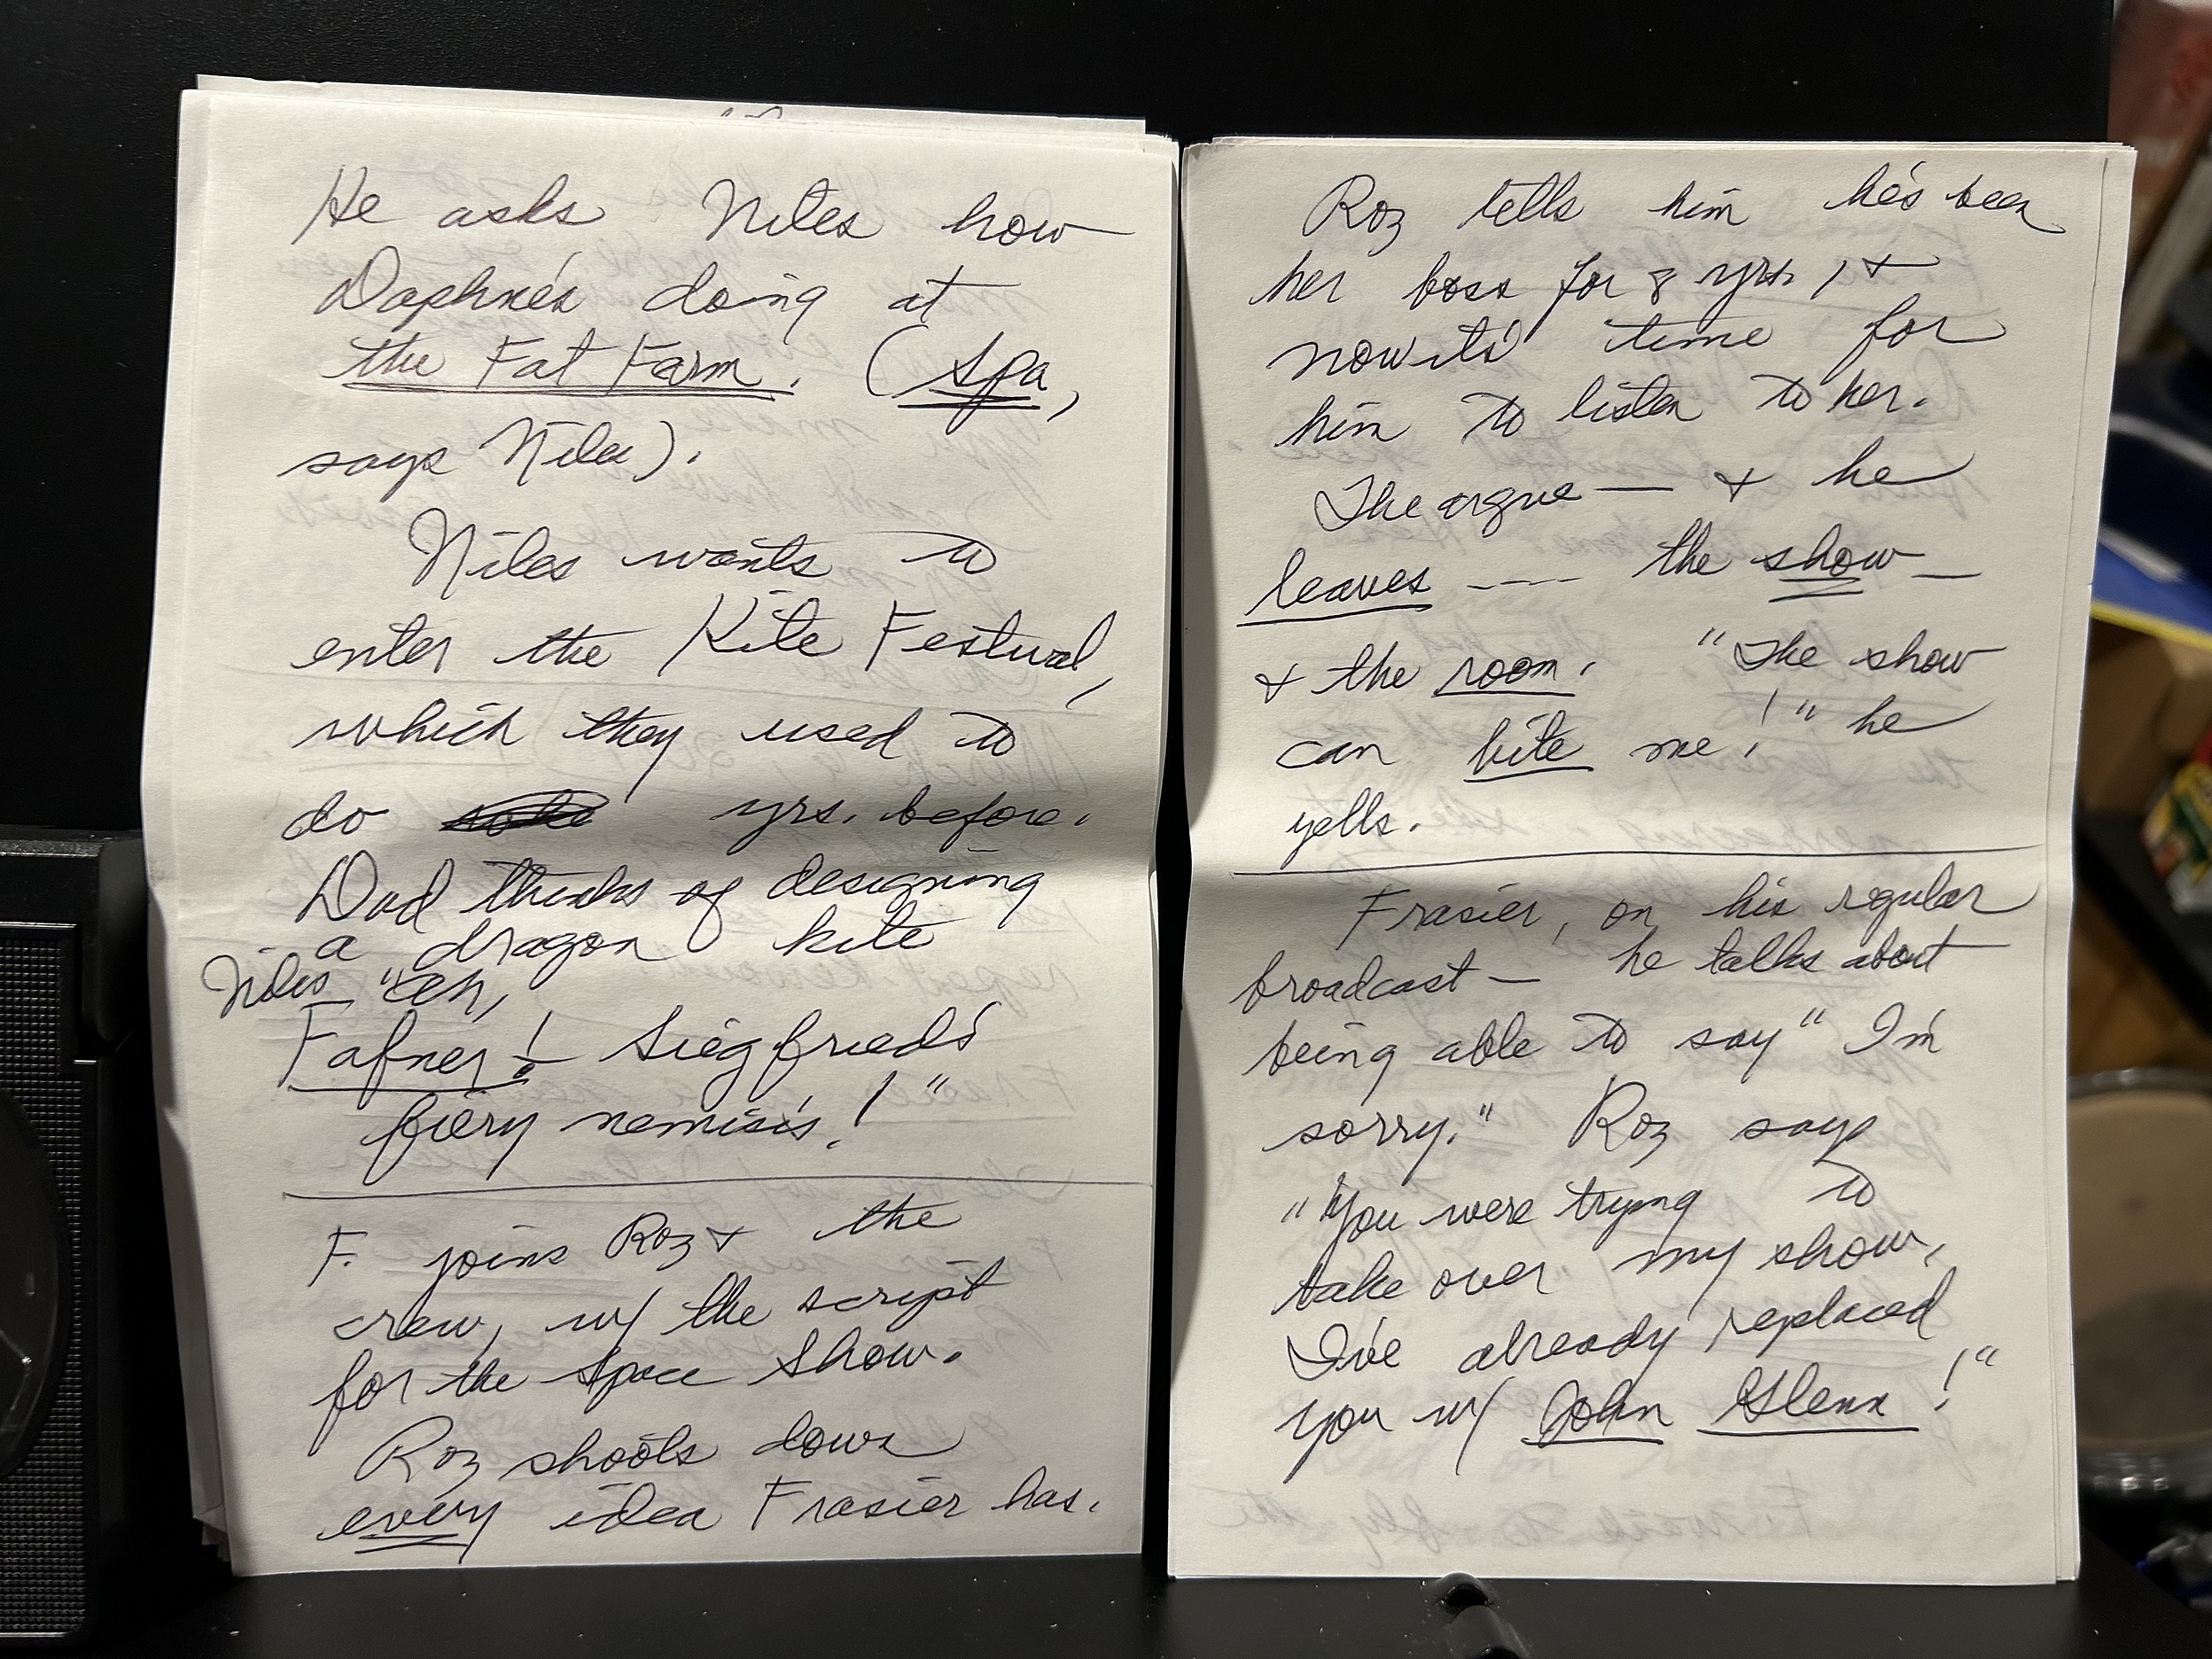 He asks Niles how
Daphne's doing at
the Fat Farm. (Spa,
says Niles).
Niles wants to
enter the Kite Festival,
which they used to
do yrs. before.
Dad thinks of designing
a dragon kite
Niles "
Fafner! Siegfried's
fiery nemisis!"
F. joins Roz & the
crew, w/ the script
for the Space Show.
Roz shoots down
every idea Frasier has.
Roz tells him he's been
her boss for 8 yrs, &
now it's time for
him to listen to her.
The argue — & he
leaves ---- the show —
& the room. "The show
can bite me!" he
yells.
Frasier, on his regular
broadcast — he talks about
being able to say "I'm
sorry." Roz says
"You were trying to
take over my show,
I've already replaced
you w/ John Glenn!"